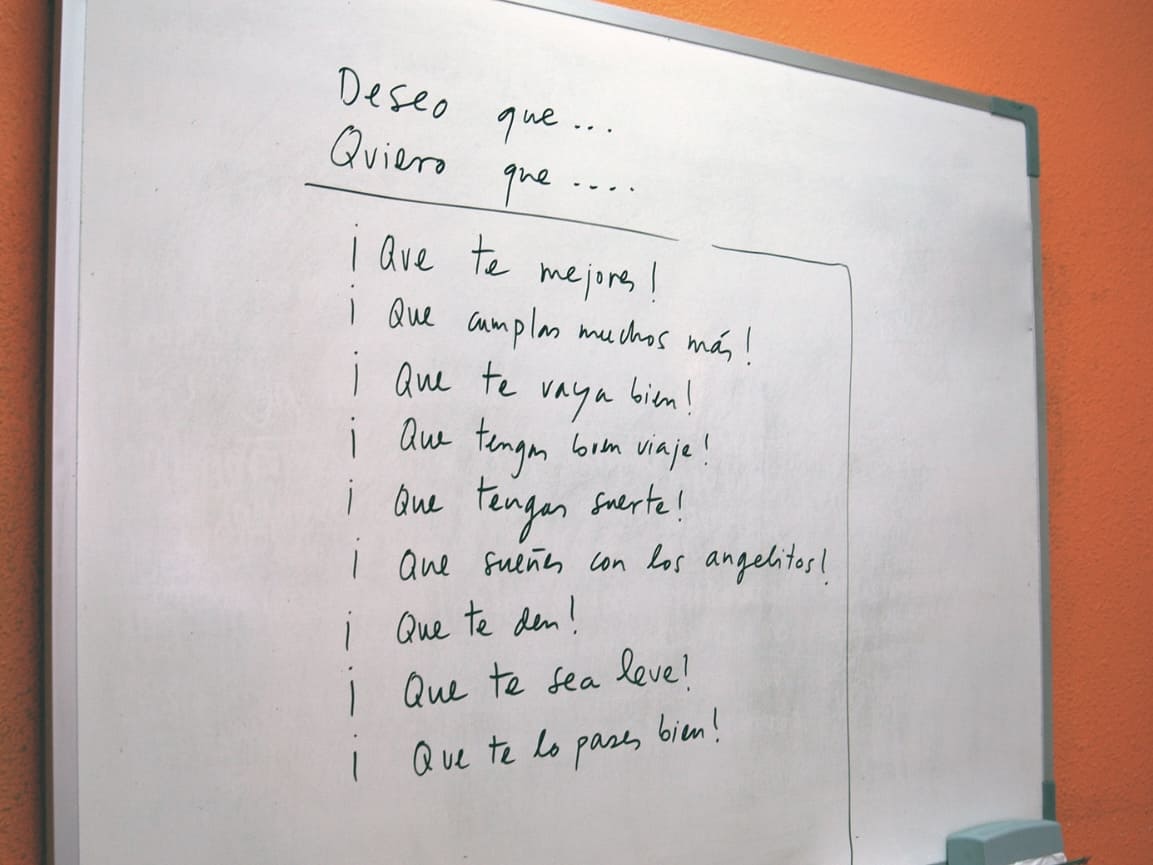 Deseo que...
Quiero que....
¡Que te mejores!
¡Que cumplas muchos más!
¡Que te vaya bien!
¡Que tengas buen viaje!
¡Que tengas suerte!
¡Que sueñes con los angelitos!
¡Que te den!
¡Que te sea leve!
¡Que te lo pases bien!